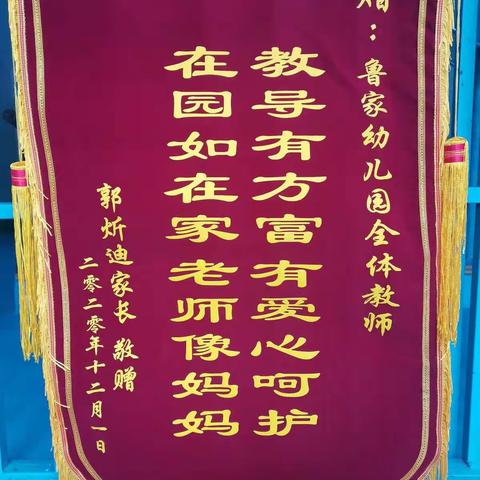 赠：鲁家幼儿园全体教师
教导有方富有爱心呵护
在园如在家老师像妈妈
郭炘迪家长 敬赠
二零二零年十二月一日